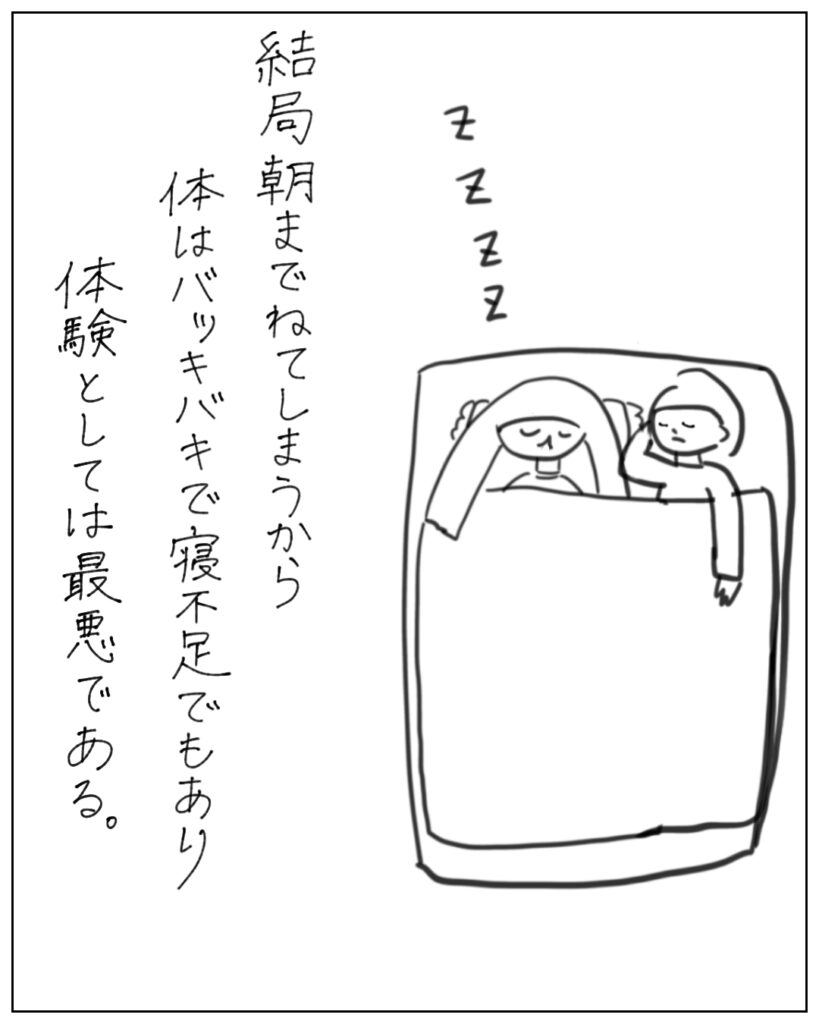 結局朝までねてしまうから
体はバッキバキで寝不足でもあり
体験としては最悪である。
z
z
z
z